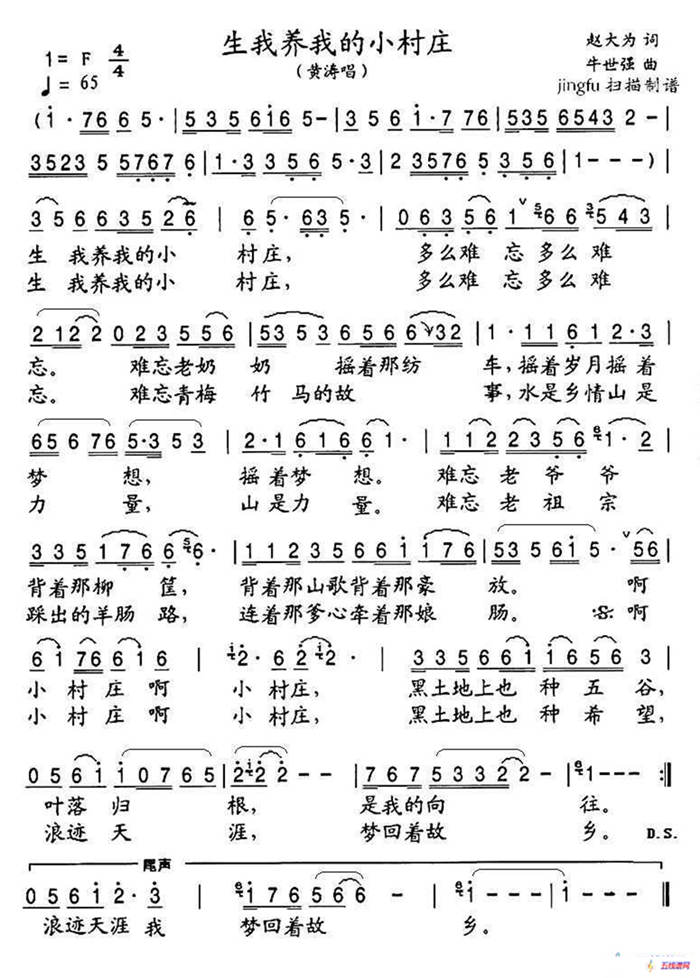 生我养我的小村庄
1= F 4/4
♩= 65
(黄涛唱)
赵大为 词
牛世强 曲
jingfu 扫描制谱
(i· 76 6 5· | 5 3 5 6 5 6i6 5- | 3 5 6 i· 7 76 | 535 6543 2 - |
3523 5 5767 6 | 1·3 3 5 6 5·3 | 2 3576 5 3 5 6 | 1 - - - )|
3 5 6 6 3 5 2 6 | 6 5· 63 5· | 0 6 3 5 6 1 6 6 5 4 3 |
生 我养我的小 村庄, 多么难 忘 多么 难
生 我养我的小 村庄, 多么难 忘 多么 难
2 12 2 0 2 3 5 5 6 | 53 5 3 6 5 6 6 32 | 1· 1 1 6 1 2·3 |
忘。 难忘老奶 奶 摇着那纺 车,摇着岁月摇着
忘。 难忘青梅 竹 马的故 事,水是乡情山是
65 6 76 5·3 5 3 | 2·1 6 1 6 6 1· | 1 1 2 2 3 5 6 1·2 |
梦 想, 摇着梦 想。 难忘 老 爷 爷
力 量, 山是力 量。 难忘 老 祖 宗
3 3 5 1 7 6 6· | 1 1 2 3 5 6 6 i i 76 | 53 5 6i 5· 56 |
背着那柳 筐, 背着那山歌背着那豪 放。 啊
踩出的羊肠 路, 连着那爹心牵着那娘 肠。 啊
6 i 76 6 i 6 | 2· 6 2· | 3 3 5 6 6 i i 6 5 6 3 |
小 村 庄 啊 小 村庄, 黑土地上也 种 五 谷,
小 村 庄 啊 小 村庄, 黑土地上也 种 希 望,
0 5 6 i i 0 7 6 5 | 2·2 2 - - | 7 6 7 5 3 3 2 2 - | 1 - - - :||
叶落 归 根, 是我的向 往。
浪迹 天 涯, 梦回着故 乡。 D.S.
尾声
0 5 6 i 2·3 | i - - - | i 7 6 5 6 6 - | i - - - | i - - - ||
浪迹天涯 我 梦回着故 乡。
五线谱网